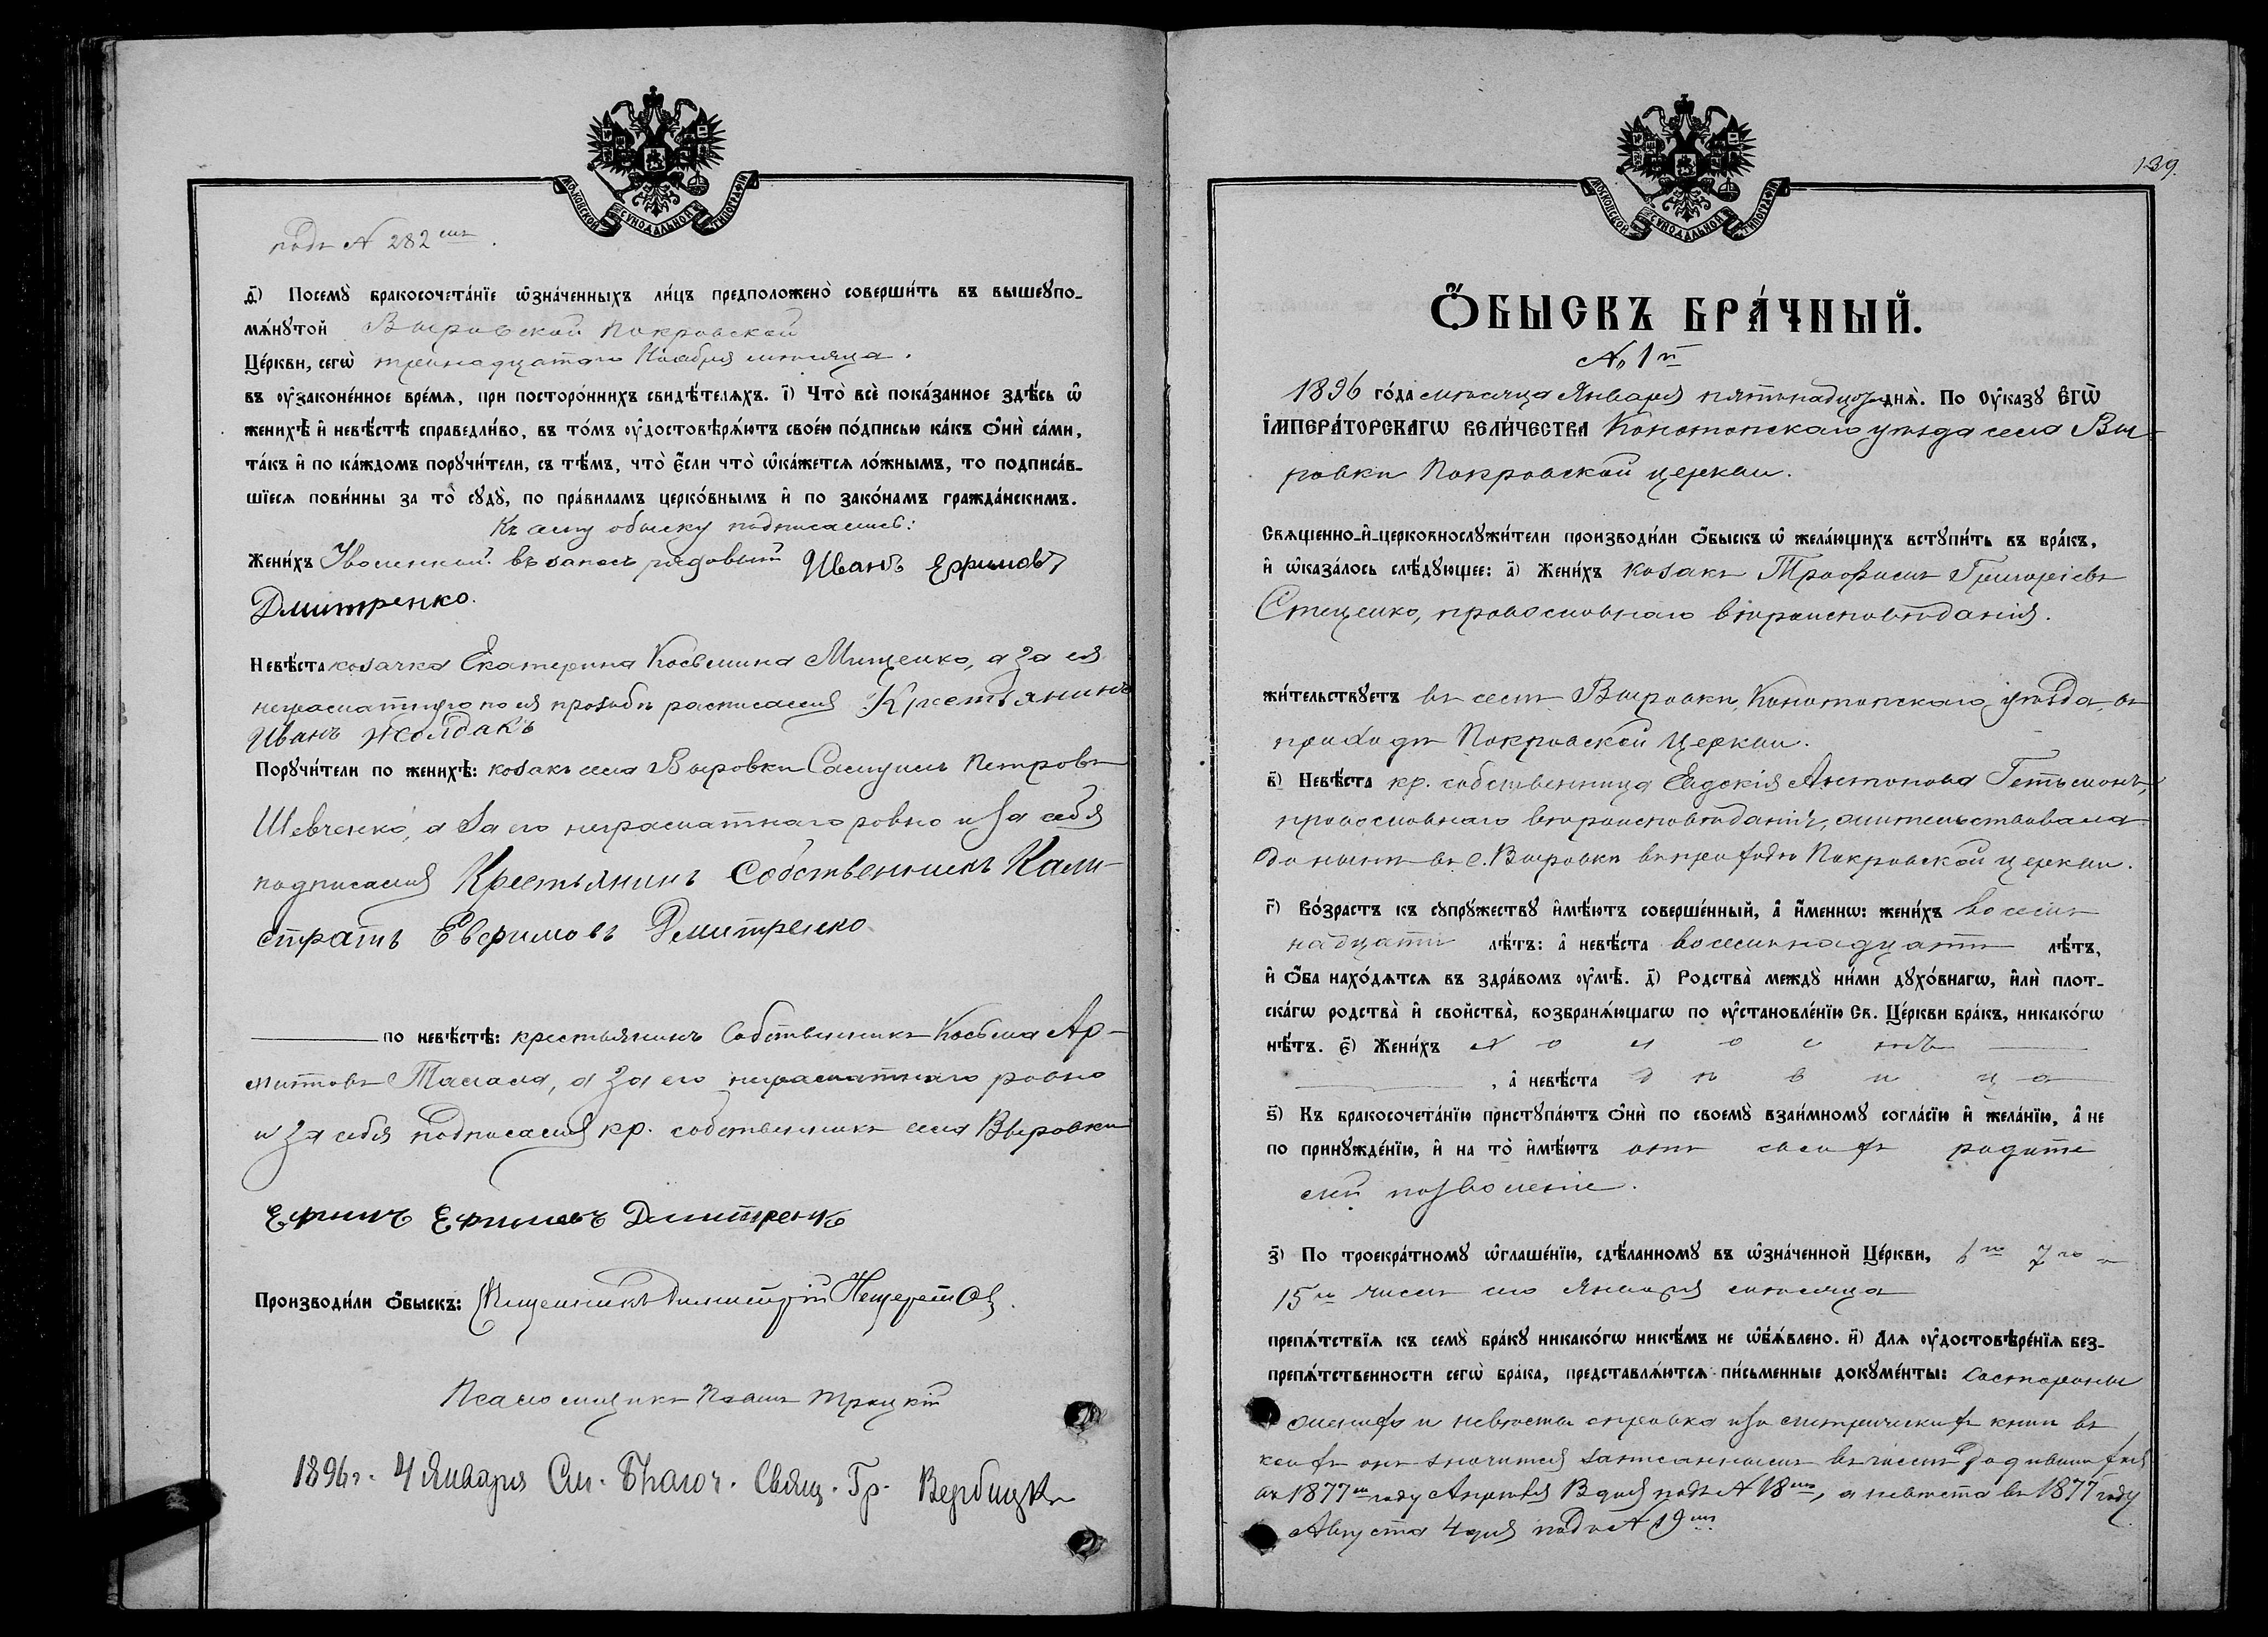 МОСКОВСКОЙ СѴНОДАЛЬНОЙ ТИПОГРАФІИ
подъ № 282 емъ.
д҃) Посемꙋ̀ бракосочета́нїе ѡ҆зна́ченныхъ ли́цъ предположено̀ соверши́ть въ вышеꙋпо-
мѧ́нꙋтой Выровской Покровской
Це́ркви, сегѡ̀ тринадцатаго Ноября мѣсяца.
въ ᲂу҆законе́нное вре́мѧ, при посторо́ннихъ свидѣ́телѧхъ. і҃) Что̀ всѐ пока́занное здѣ́сь ѡ҆
женихѣ̀ и҆ невѣ́стѣ справедли́во, въ то́мъ ᲂу҆достовѣрѧ́ютъ свое́ю по́дписью ка́къ Ѻ҆нѝ са́ми,
та́къ и҆ по ка́ждомъ порꙋчи́тели, съ тѣ́мъ, что̀ є҆́сли что̀ ѡ҆ка́жетсѧ ло́жнымъ, то подписа́в-
шїесѧ пови́нны за то̀ сꙋдꙋ̀, по пра́виламъ церко́внымъ и҆ по зако́намъ гражда́нскимъ.
Къ сему обыску подписались:
Жени́хъ Уволенный въ запасъ рядовый Иванъ Ефимовъ
Дмитренко.
Невѣ́ста козачка Екатерина Косьмина Мищенко, а за ея
неграматную по ея прозьбѣ росписался Крестьянинъ
Иванъ Жолдакъ
Порꙋчи́тели по женихѣ̀: козакъ села Выровки Самуилъ Петровъ
Шевченко, а за его неграматнаго ровно и за себя
подписался Крестьянинъ Собственникъ Кали-
стратъ Евфимовъ Дмитренко
по невѣ́стѣ: крестьянинъ собственникъ Косьма Ар-
а за его неграматнаго ровно
и за себя подписался кр. собственникъ села Выровки
Ефимъ Ефимовъ Дмитренко
Производи́ли Ѻ҆́быскъ: Священникъ Димитрій
Псаломщикъ Павелъ Троцкій
1896 г. 4 Января См. Благоч. Свящ. Гр. Вербицкій
139.
МОСКОВСКОЙ СѴНОДАЛЬНОЙ ТИПОГРАФІИ
Ѻ҆́БЫСКЪ БРА́ЧНЫЙ.
№ 1й
1896 го́да мѣсяца Января пятнадцат. днѧ̀. По Оу҆ка́зꙋ Є҆гѡ̀
І҆МПЕРА́ТОРСКАГѠ ВЕЛИ́ЧЕСТВА Конотопскаго уѣзда села Вы-
ровки Покровской церкви.
Свѧще́нно-и҆-церковнослꙋжи́тели производи́ли Ѻ҆́быскъ ѡ҆ жела́ющихъ встꙋпи́ть въ бра́къ,
и҆ ѡ҆каза́лось слѣ́дꙋющее: а҃) Жени́хъ козакъ Трофимъ Григоріевъ
Стеценко, православнаго вѣроисповѣданія.
жи́тельствꙋетъ въ селѣ Выровки, Конотопскаго уѣзда, въ
приходѣ Покровской Церкви.
в҃) Невѣ́ста кр. собственница Евдокія Антонова Гетьманъ,
православнаго вѣроисповѣданія, жительствовала
до нынѣ въ с. Выровки въ приходѣ Покровской церкви.
г҃) Во́зрастъ къ сꙋпрꙋ́жествꙋ и҆мѣ́ютъ соверше́нный, а҆ и҆́меннѡ: жени́хъ восем-
надцати лѣ́тъ: а҆ невѣ́ста восемнадцати лѣ́тъ,
и҆ Ѻ҆́ба нахо́дѧтсѧ въ здра́вомъ ᲂу҆мѣ̀. д҃) Родства̀ междꙋ̀ ни́ми дꙋхо́внагѡ, и҆лѝ плот-
ска́гѡ родства̀ и҆ свойства̀, возбранѧ́ющагѡ по ᲂу҆становле́нїю Св. Це́ркви бра́къ, никако́гѡ
нѣ́тъ. є҃) Жени́хъ холостъ
, а҆ невѣ́ста дѣвица
ѕ҃) Къ бракосочета́нїю пристꙋпа́ютъ Ѻ҆нѝ по своемꙋ̀ взаи́мномꙋ согла́сїю и҆ жела́нїю, а҆ не
по принꙋжде́нїю, и҆ на то̀ и҆мѣ́ютъ отъ своихъ родите
лей позволеніе.
з҃) По троекра́тномꙋ ѡ҆глаше́нїю, сдѣ́ланномꙋ въ ѡ҆зна́ченной Це́ркви, 6го 7го и
15го чиселъ сего Января мѣсяца
препѧ́тствїѧ къ семꙋ̀ бра́кꙋ никако́гѡ никѣ́мъ не ѡ҆б̾ѧ́влено. и҃) Длѧ ᲂу҆достовѣре́нїѧ без-
препѧ́тственности сегѡ̀ бра́ка, представлѧ́ютсѧ пи́сьменные докꙋме́нты: Состороны
жениха и невѣсты справка изъ метрическихъ книгъ въ
коихъ онъ значится записаннымъ въ числѣ родившихся
въ 1877м году Апрѣля дня подъ № 18мъ, а невѣста въ 1877 году
Августа 4 дня подъ № 19мъ